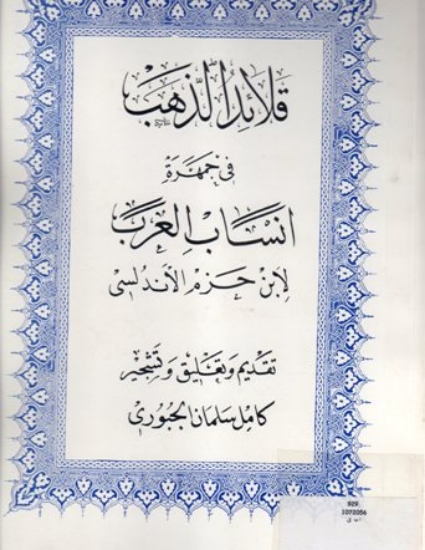 قلائد الذهب
في جمهرة
انساب العرب
لابن حزم الأندلسي
تقديم وتعليق وتشجير
كامل سلمان الجبوري
929
1072056